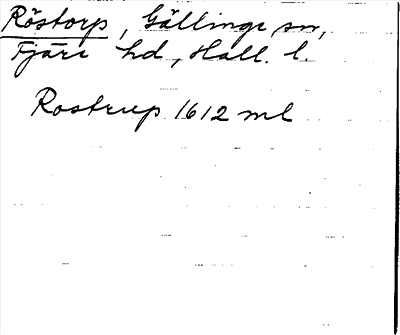 Röstorp, Gällinge sn,
Fjäre hd, Hall. l.
Rostrup 1612 ml